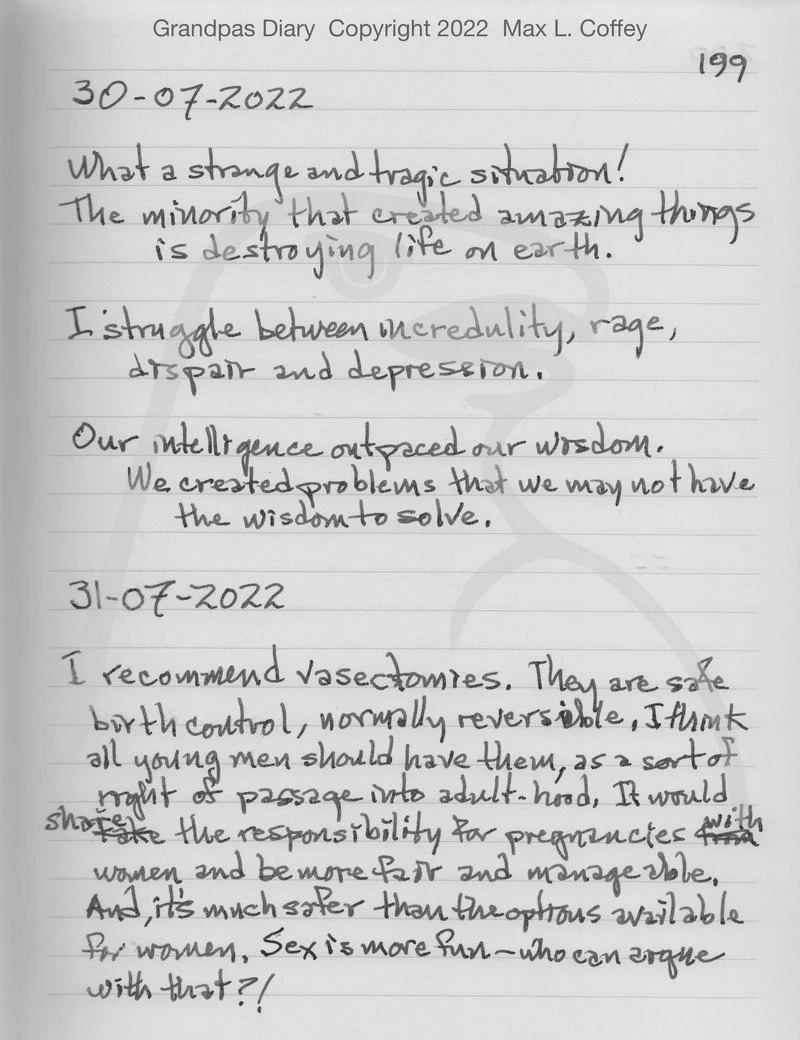 Grandpas Diary Copyright 2022 Max L. Coffey
199
30-07-2022
What a strange and tragic situation!
The minority that created amazing things
is destroying life on earth.
I struggle between incredulity, rage,
dispair and depression.
Our intelligence outpaced our wisdom.
We created problems that we may not have
the wisdom to solve.
31-07-2022
I recommend vasectomies. They are safe
birth control, normally reversible. I think
all young men should have them, as a sort of
right of passage into adult-hood. It would
share take the responsibility for pregnancies with from
women and be more fair and manageable.
And, it's much safer than the options available
for women. Sex is more fun - who can argue
with that?!